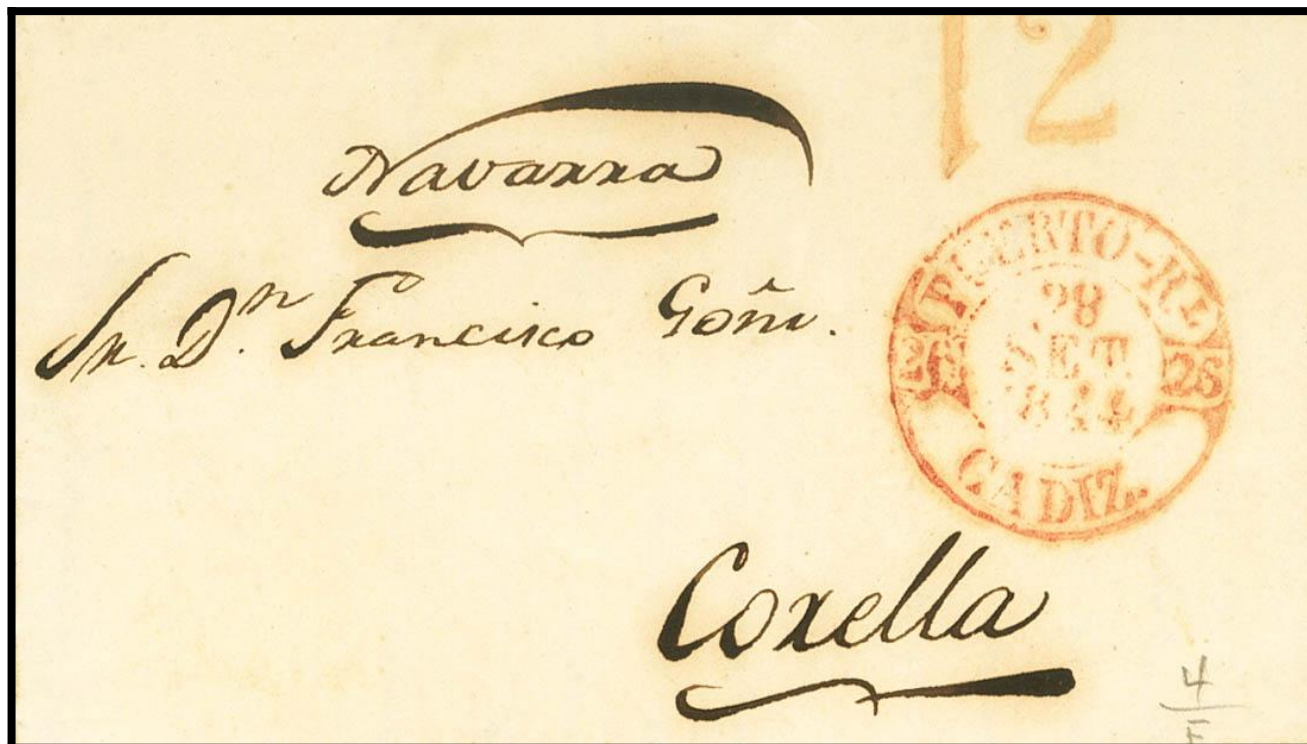 12
Navarra
Sr. Dn. Francisco Goñi.
PUERTO-RL.
28
SET
1844
25
CADIZ.
Corella
4